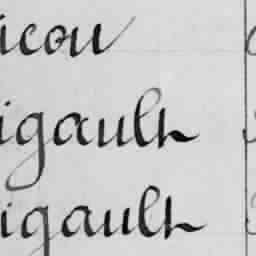 icou
igault
igault